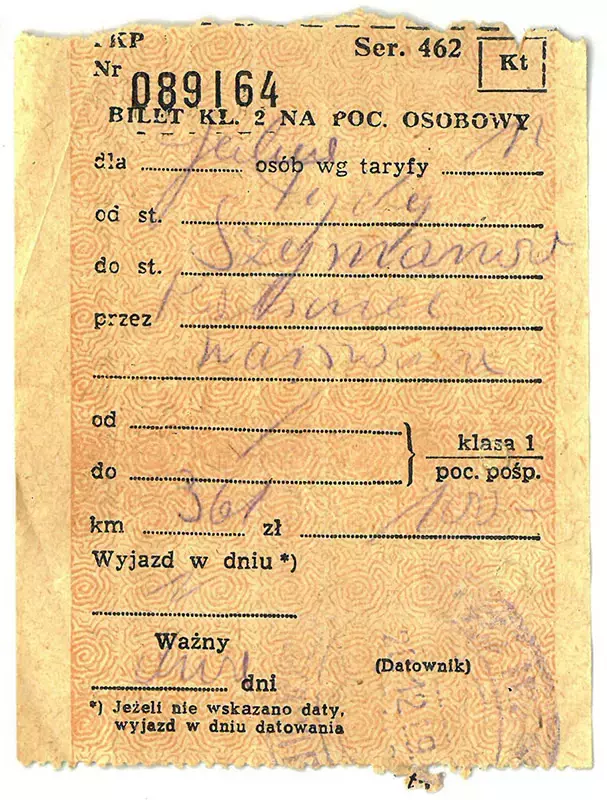 PKP Ser. 462 Kt
Nr 089164
BILET KL. 2 NA POC. OSOBOWY
dla .......... osób wg taryfy ..........
od st. Tychy
do st. Szymanów
przez
Warszawa
od
do klasa 1
poc. pośp.
km 361 zł
Wyjazd w dniu *)
Ważny
dni (Datownik)
*) Jeżeli nie wskazano daty,
wyjazd w dniu datowania